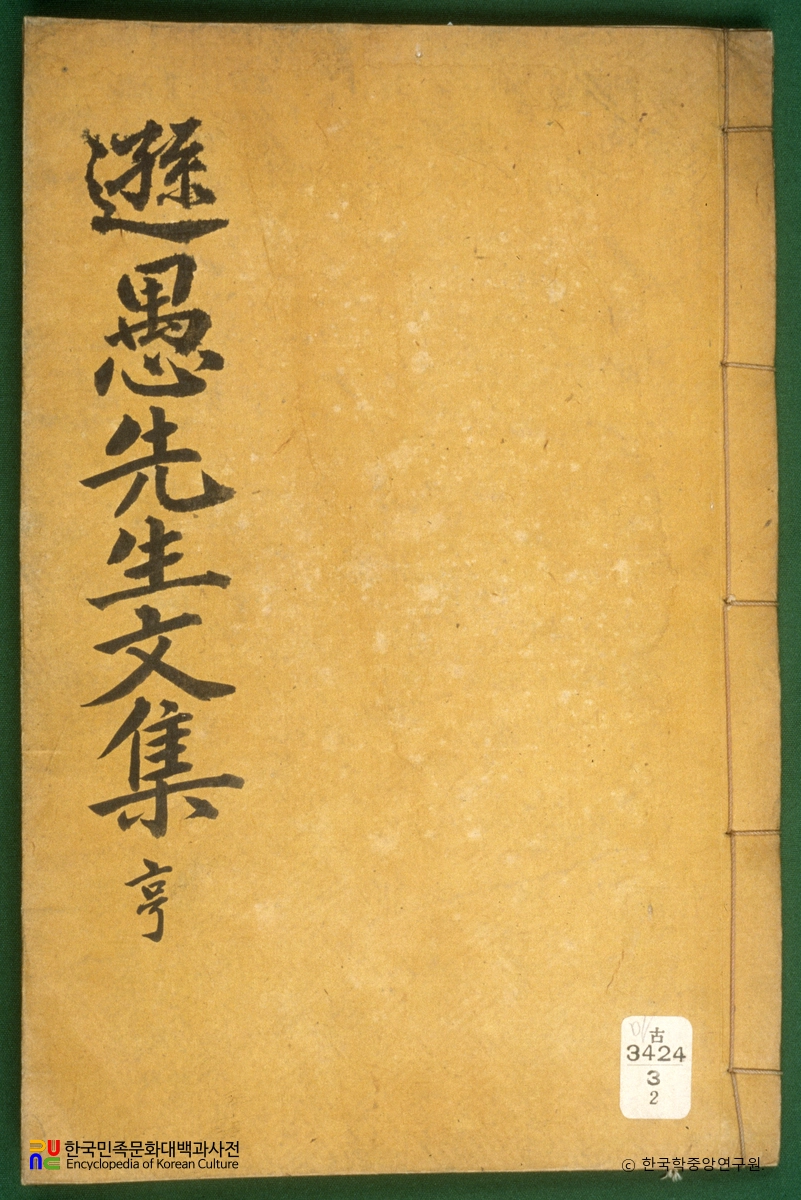 遜愚先生文集 亨
古
3424
3
2
한국민족문화대백과사전
Encyclopedia of Korean Culture
© 한국학중앙연구원